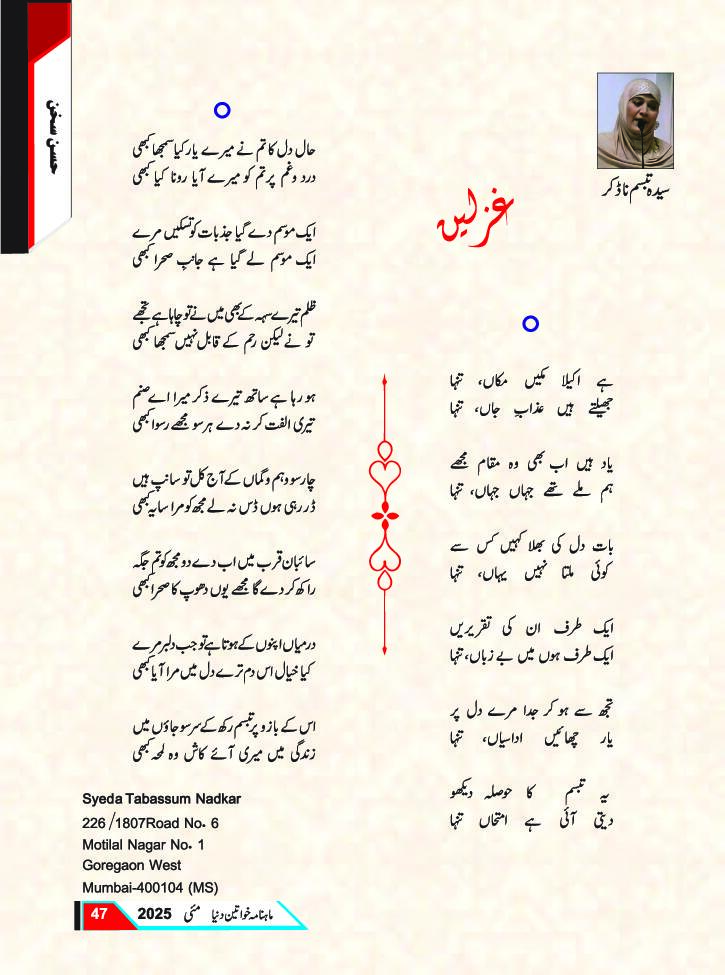 حسن سخن
سیدہ تبسم ناڈکر
غزلیں
ہے اکیلا مکیں مکاں، تنہا
جھیلتے ہیں عذابِ جاں، تنہا
یاد ہیں اب بھی وہ مقام مجھے
ہم ملے تھے جہاں جہاں، تنہا
بات دل کی بھلا کہیں کس سے
کوئی ملتا نہیں یہاں، تنہا
ایک طرف ان کی تقریریں
ایک طرف ہوں میں بے زباں، تنہا
تجھ سے ہو کر جدا مرے دل پر
یار چھائیں اداسیاں، تنہا
یہ تبسم کا حوصلہ دیکھو
دیتی آئی ہے امتحاں تنہا
حال دل کا تم نے میرے یار کیا سمجھا کبھی
درد وغم پر تم کو میرے آیا رونا کیا کبھی
ایک موسم دے گیا جذبات کو تسکیں مرے
ایک موسم لے گیا ہے جانبِ صحرا کبھی
ظلم تیرے سہہ کے بھی میں نے تو چاہا ہے تجھے
تو نے لیکن رحم کے قابل نہیں سمجھا کبھی
ہو رہا ہے ساتھ تیرے ذکر میرا اے صنم
تیری الفت کر نہ دے ہر سو مجھے رسوا کبھی
چارسو وہم و گماں کے آج کل تو سانپ ہیں
ڈر رہی ہوں ڈس نہ لے مجھ کو مرا سایہ کبھی
سائبان قرب میں اب دے دو مجھ کو تم جگہ
راکھ کر دے گا مجھے یوں دھوپ کا صحرا کبھی
درمیاں اپنوں کے ہوتا ہے تو جب دلبر مرے
کیا خیال اس دم ترے دل میں مرا آیا کبھی
اس کے بازو پر تبسم رکھ کے سر سو جاؤں میں
زندگی میں میری آئے کاش وہ لمحہ کبھی
Syeda Tabassum Nadkar
226/1807Road No. 6
Motilal Nagar No. 1
Goregaon West
Mumbai-400104 (MS)
47 ماہنامہ خواتین دنیا مئی 2025